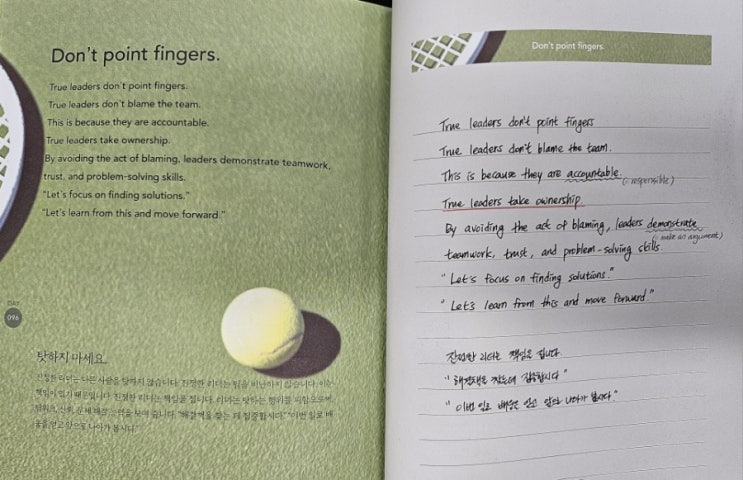 Don't point fingers.
True leaders don't point fingers.
True leaders don't blame the team.
This is because they are accountable.
True leaders take ownership.
By avoiding the act of blaming, leaders demonstrate teamwork,
trust, and problem-solving skills.
"Let's focus on finding solutions."
"Let's learn from this and move forward."
DAY
096
탓하지 마세요.
진정한 리더는 다른 사람을 탓하지 않습니다. 진정한 리더는 팀을 비난하지 않습니다. 이는
책임이 있기 때문입니다. 진정한 리더는 책임을 집니다. 리더는 탓하는 행위를 피함으로써,
팀워크, 신뢰, 문제 해결 능력을 보여 줍니다. "해결책을 찾는 데 집중합시다." "이번 일로 배
움을 얻고 앞으로 나아가 봅시다."
Don't point fingers.
True leaders don't point fingers
True leaders don't blame the team.
This is because they are accountable.
(= responsible)
True leaders take ownership.
By avoiding the act of blaming, leaders demonstrate
(= make an argument)
teamwork, trust, and problem-solving skills.
"Let's focus on finding solutions."
"Let's learn from this and move forward."
진정한 리더는 책임을 집니다.
"해결책을 찾는데 집중합시다"
"이번 일로 배움을 얻고 앞으로 나아가 봅시다."